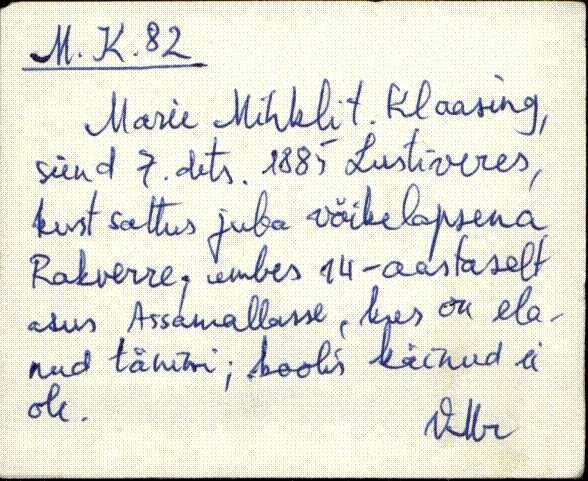 M. K. 82
Marie Mihkli t. Klaasing,
sünd 7. dets. 1885 Lustiveres,
kust sattus juba väikelapsena
Rakverre; umbes 14-aastaselt
asus Assamallasse, kus on ela-
nud tänini; koolis käinud ei
ole.